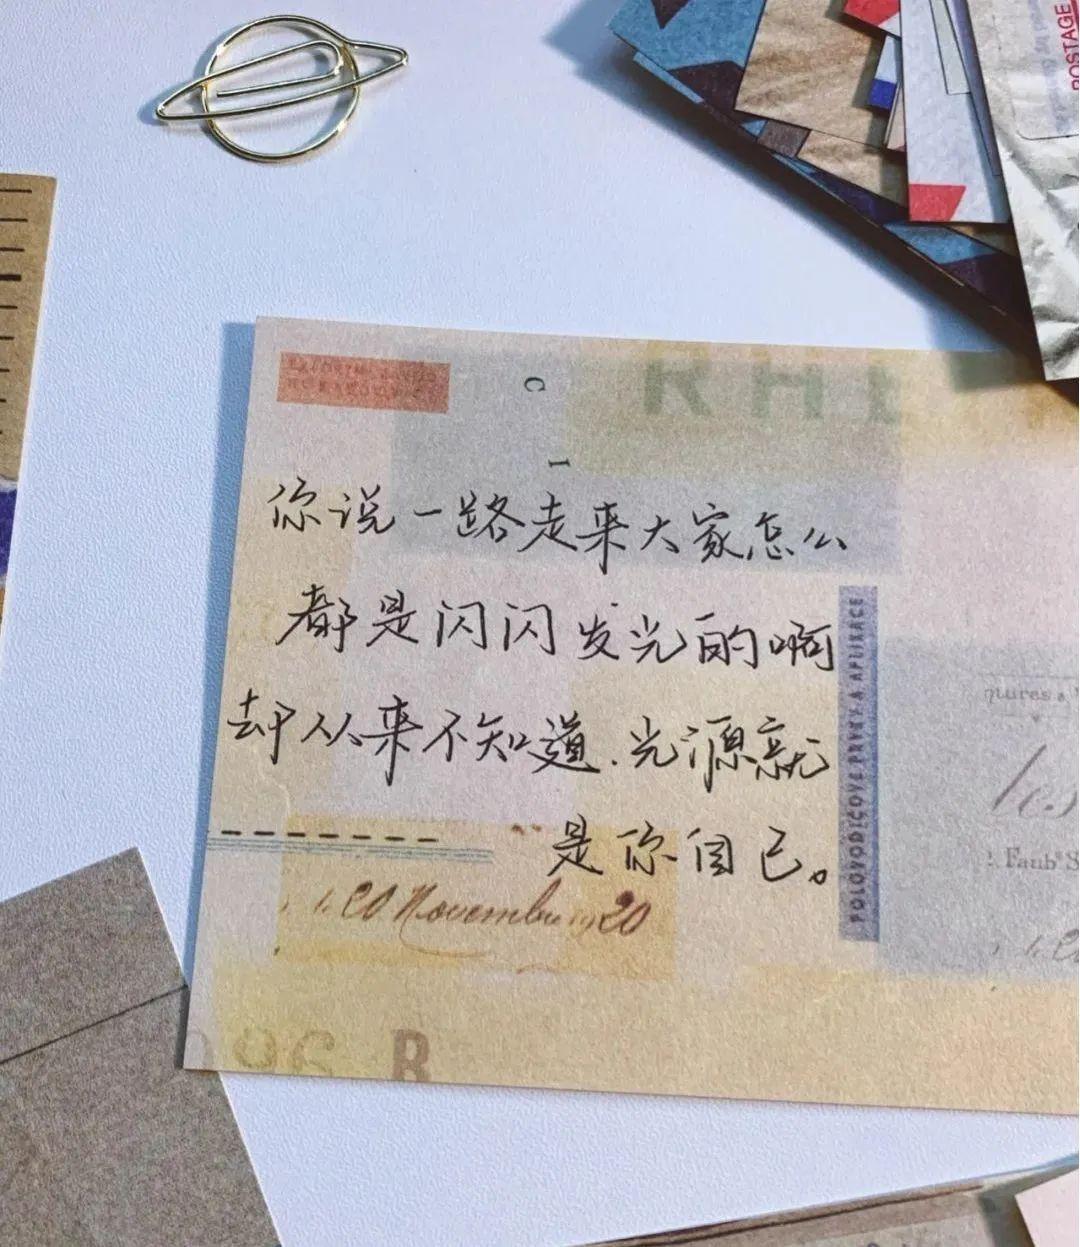 POSTAGE
C
RHE
I
你说一路走来大家怎么
都是闪闪发光的啊
却从来不知道.光源就
是你自己。
20 November 1920
POLOVODIČOVÉ PRVKY A APLIKACE
Faub
R